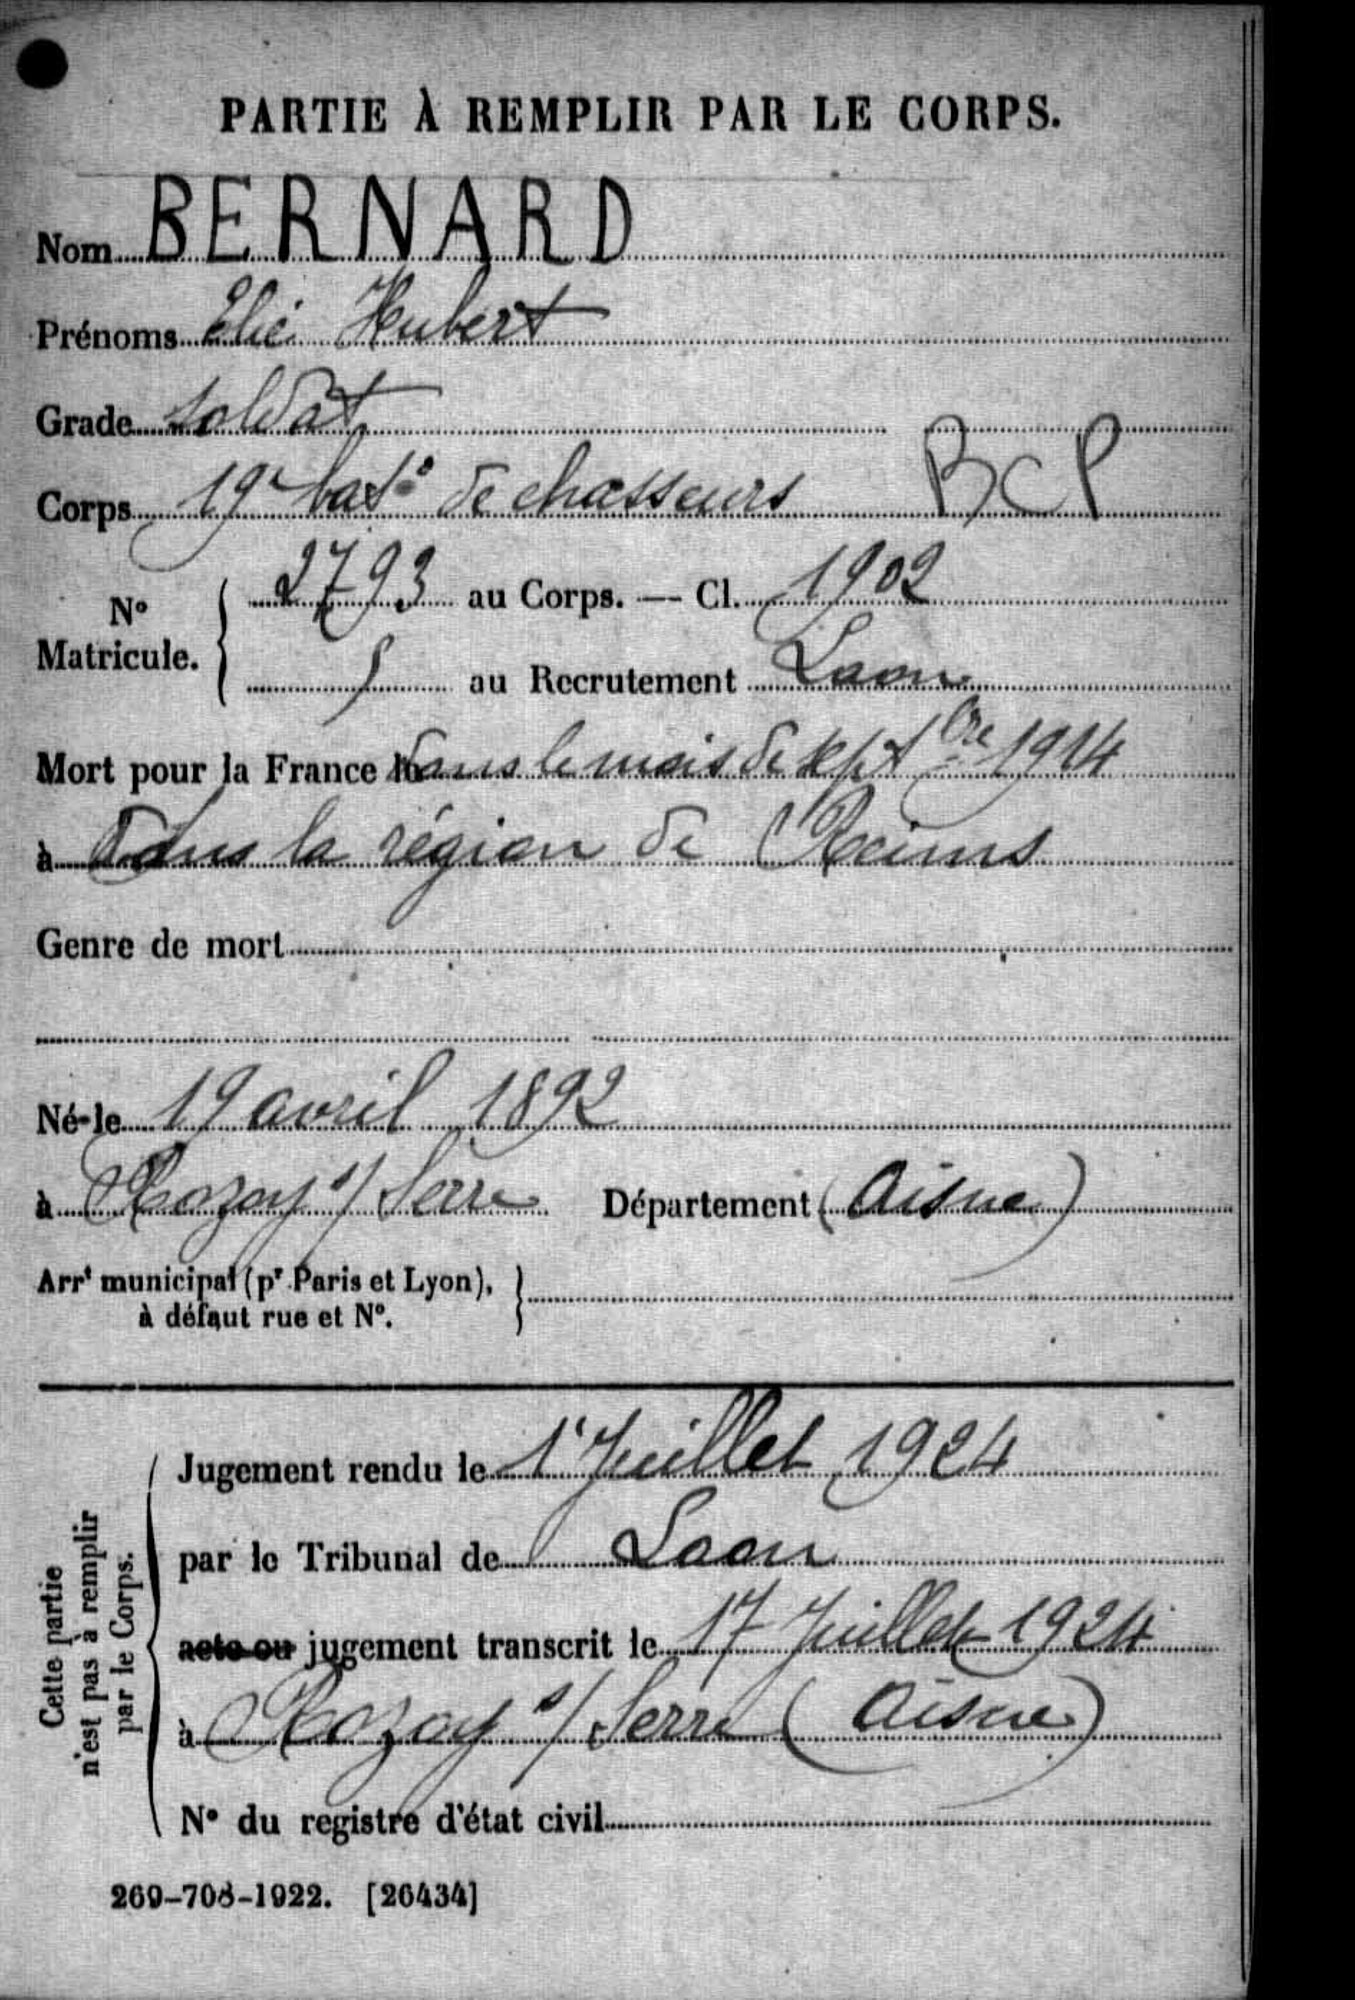 PARTIE À REMPLIR PAR LE CORPS.
Nom BERNARD
Prénoms Elie Hubert
Grade soldat
Corps 19e bat° de chasseurs BCP
N° Matricule. 2793 au Corps. — Cl. 1902
5 au Recrutement Laon
Mort pour la France dans le mois de septbre 1914
à dans la région de Reims
Genre de mort
Né le 19 avril 1892
à Rozoy s/ Serre Département (Aisne)
Arrt municipal (pr Paris et Lyon),
à défaut rue et N°.
Cette partie
n'est pas à remplir
par le Corps.
Jugement rendu le 1r Juillet 1924
par le Tribunal de Laon
acte ou jugement transcrit le 17 Juillet 1924
à Rozoy s/ Serre (Aisne)
N° du registre d'état civil
269-708-1922. [26434]